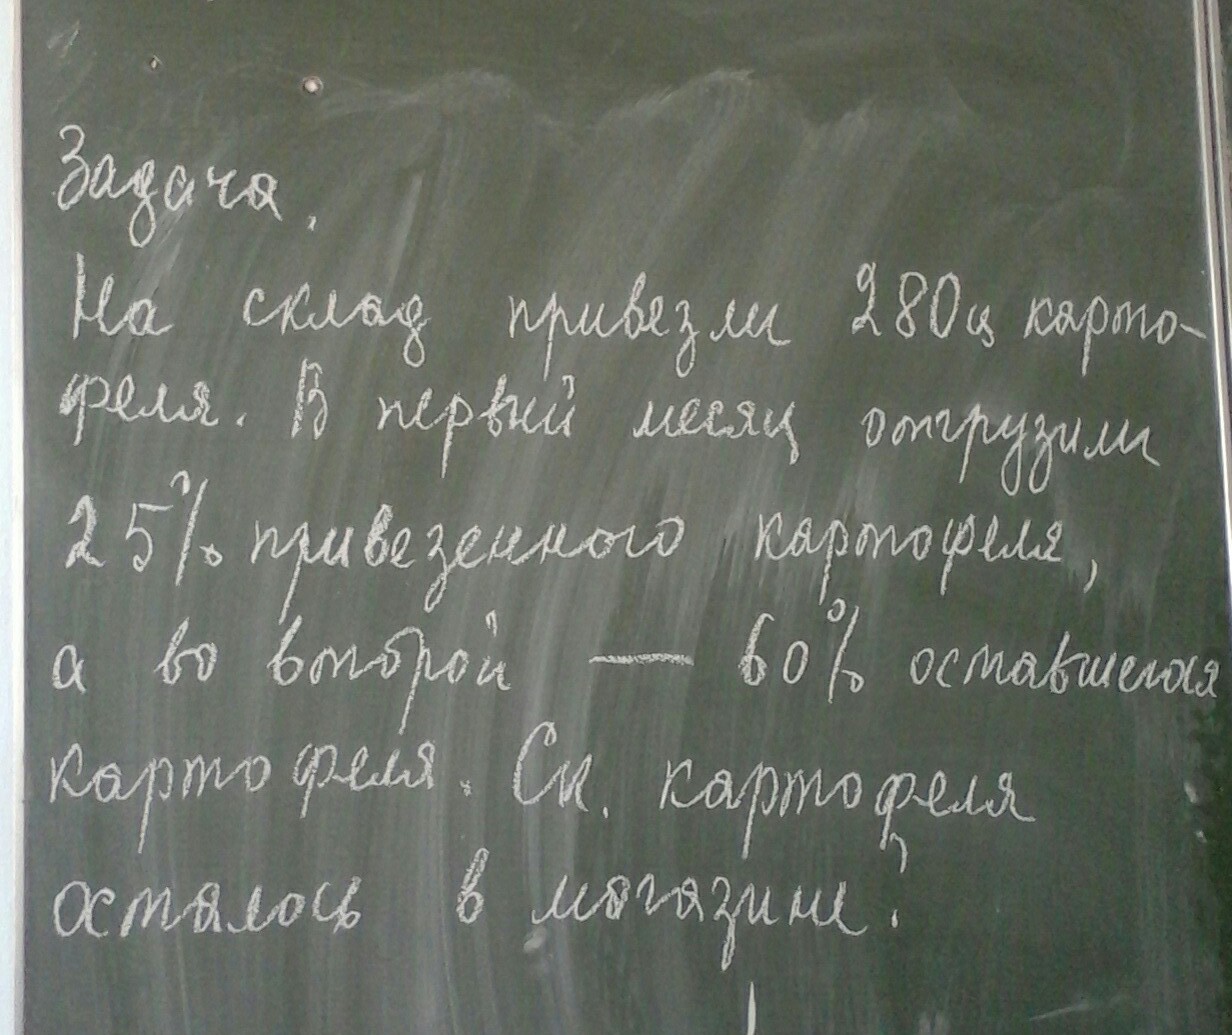 Задача.
На склад привезли 280ц карто-
феля. В первый месяц отгрузили
25% привезенного картофеля,
а во второй — 60% оставшегося
картофеля. Ск. картофеля
осталось в магазине?